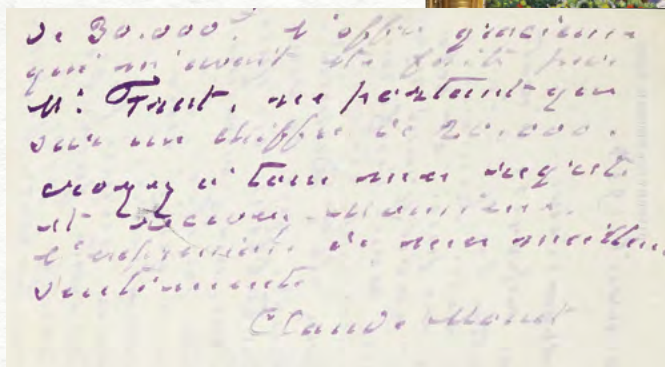 de 30.000. l'offre gracieuse
qui m'avait été faite par
M. Trut, ne portant que
sur un chiffre de 20.000.
croyez à tous mes regrets
et recevez Monsieur,
l'expression de mes meilleurs
sentiments
Claude Monet